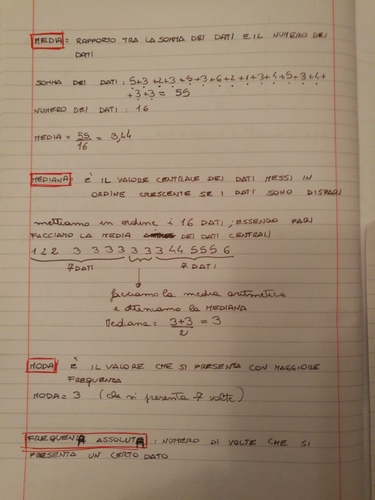 MEDIA = RAPPORTO TRA LA SOMMA DEI DATI E IL NUMERO DEI
DATI
SOMMA DEI DATI: 5+3+2+3+5+3+6+2+1+3+4+5+3+4+
+3+3 = 55
NUMERO DEI DATI: 16
MEDIA = 55/16 = 3,44
MEDIANA: È IL VALORE CENTRALE DEI DATI MESSI IN
ORDINE CRESCENTE SE I DATI SONO DISPARI
mettiamo in ordine i 16 DATI; ESSENDO PARI
FACCIAMO LA MEDIA DEI DATI CENTRALI
1 2 2 3 3 3 3 3 3 3 4 4 5 5 5 6
7 DATI 7 DATI
facciamo la media aritmetica
e otteniamo la MEDIANA
Mediana = 3+3/2 = 3
MODA: È IL VALORE CHE SI PRESENTA CON MAGGIORE
FREQUENZA
MODA = 3 (che si presenta 7 volte)
FREQUENZA ASSOLUTA: NUMERO DI VOLTE CHE SI
PRESENTA UN CERTO DATO